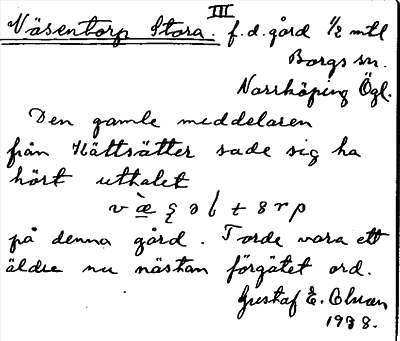 III
Väsentorp Stora. f.d. gård 1/2 mtl
Borgs sn.
Norrköping Ögl.
Den gamle meddelaren
från Kättsätter sade sig ha
hört uttalet
på denna gård. Torde vara ett
äldre nu nästan förgätet ord.
Gustaf E. Olsson
1938.